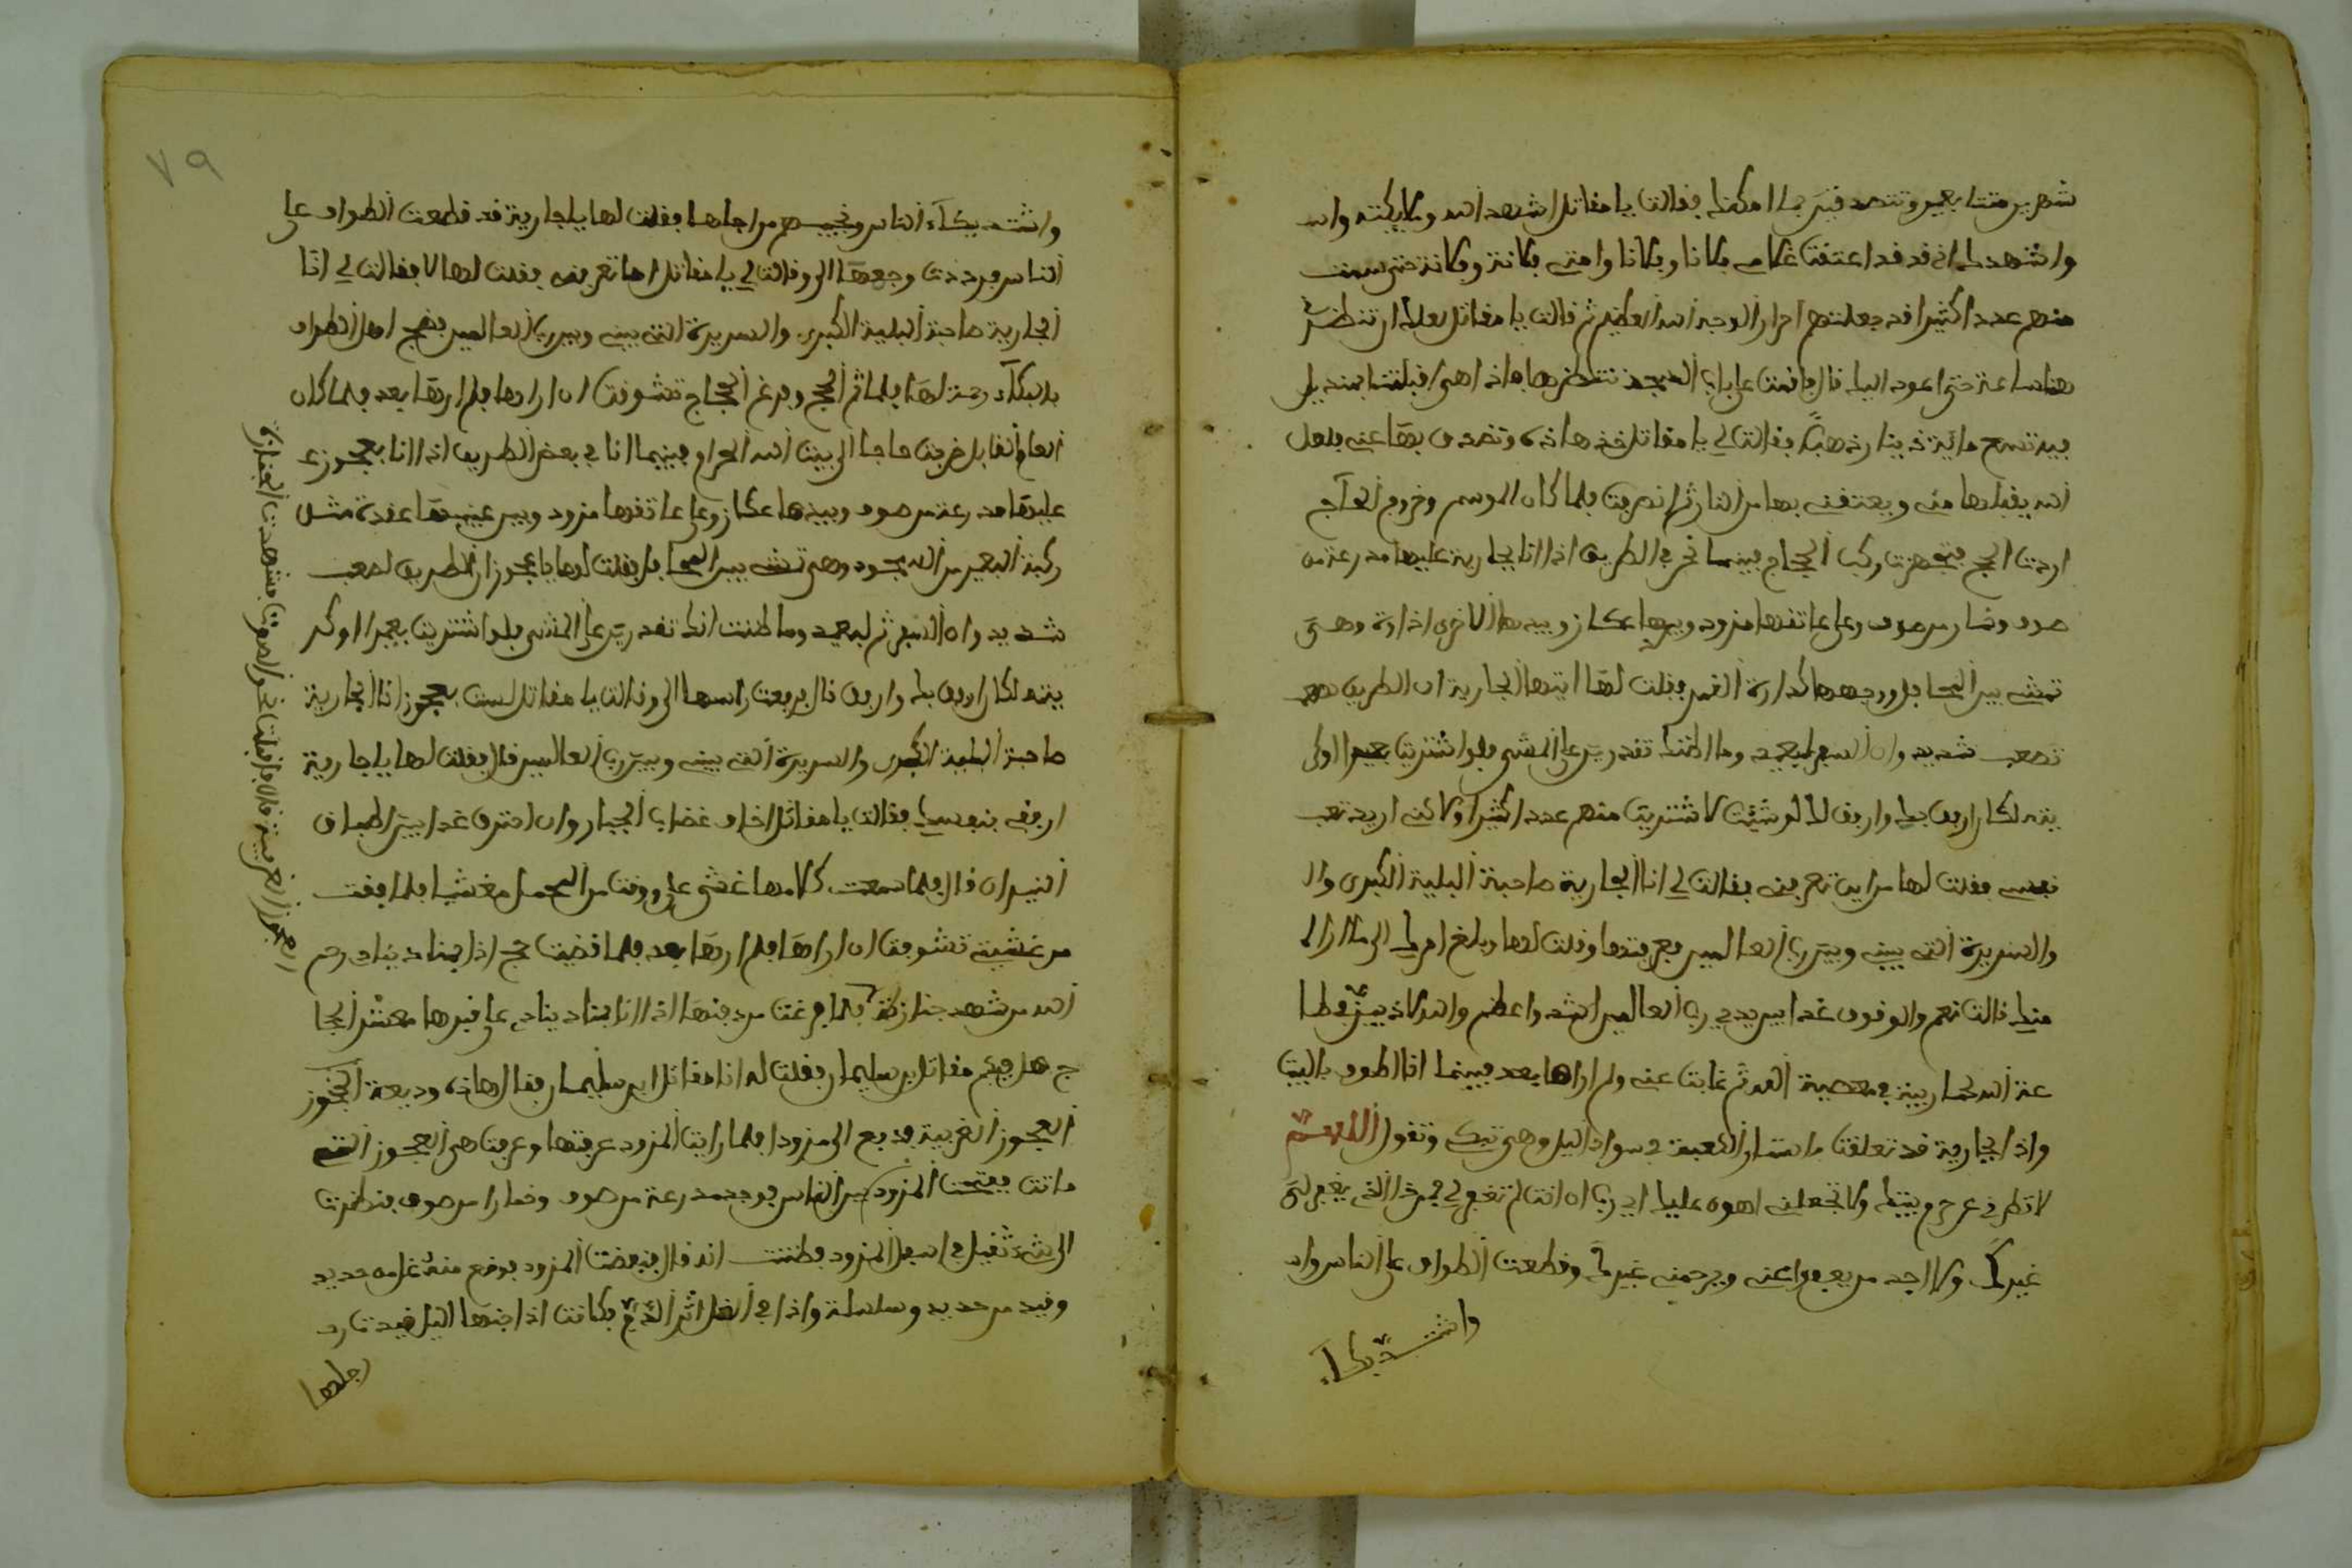 شهرين متتابعين وتتصدقين بما امكنك فقالت يا مقاتل اشهد الله وملايكته وان
واشهدك اني قد اعتقت غلامي فلانا وفلانا وامتي فلانة وفلانة حتى سمت
منهم عددا كثيرا قد جعلتهم احرارا لوجه الله العظيم ثم قالت يا مقاتل لعلك ان تنظرني
هنا ساعة حتى اعود اليك قال فاقمت على باب المسجد ننتظرها فاذا هي اقبلت بمنديل
فيه تسع مائة دينار ذهبا فقالت لي يا مقاتل خذ هاذه وتصدق بها عني فلعل
الله يقبلها مني ويعتقني بها من النار ثم انصرفت فلما كان الموسم وخروج الحآج
اردت الحج فتجهزت وركب الحجاج فبينما نحن في الطريق اذا انا بجارية عليها مدرعة من
صوف وخمار من صوف وعلى عاتقها مزود وبيدها عكاز وبيدها الاخرى اداوة وهي
تمشي بين المحامل ووجهها كدارة القمر فقلت لها ايتها الجارية ان الطريق صعب
تصعب شديد وان السفر لبعيد وما اظنك تقدرين على المشي فلو اشتريت بعيرا او كر
يته لكان ارفق بك واوفق لك لو شئت لاشتريت منهم عددا كثيرا ولاكني اريد تعب
نفسي فقلت لها من اين تعرفني فقالت لي انا الجارية صاحبة البلية الكبرى وال
والسريرة التي بيني وبين رب العالمين فعرفتها وقلت لها وبلغ امرك الى ما ارا
منك قالت نعم والوقوف غدا بين يدي رب العالمين اشد واعظم والله لاذيبن قطا
عة الله كما ربيته في معصية الله ثم غابت عني ولم اراها بعد فبينما انا اطوف بالبيت
واذا بجارية قد تعلقت باستار الكعبة في سواد اليل وهي تبكي وتقول اللهم
لا تطردني عن حرم بيتك ولا تجعلني اهون عليك اي رب ان انت لم تغفر لي فمن ذا الذي يغفر لي
غيرك ولا اجد من يعفوا عني ويرحمني غيرك وقطعت الطواف على الناس وا
واشتد بكآء
٧٩
واشتد بكآء الناس ونحيبهم من اجلها فقلت لها يا جارية قد قطعت الطواف على
الناس فردت وجهها الي وقالت لي يا مقاتل اما تعرفني فقلت لها لا فقالت لي انا
الجارية صاحبة البلية الكبرى والسريرة التي بيني وبين رب العالمين فضج اهل الطواف
بالبكآء رحمة لها فلما تم الحج وفرغ الحجاج تشوقت ان اراها فلم ارها بعد فلما كان
العام القابل خرجت حاجا الى بيت الله الحرام فبينما انا في بعض الطريق اذا انا بعجوز
عليها مدرعة من صوف وبيدها عكاز وعلى عاتقها مزود وبين عينيها عقدة مثل
ركبة البعير من السجود وهي تمشي بين المحامل فقلت لها يا عجوز ان الطريق لصعب
شديد وان السفر لبعيد وما ظننت انك تقدرين على المشي فلو اشتريت بعيرا او كر
يته لكان اوفق بك وارفق قال فرفعت راسها الي وقالت يا مقاتل لست بعجوز انا الجارية
صاحبة البلية الكبرى والسريرة التي بيني وبين رب العالمين قال فقلت لها يا جارية
ارفقي بنفسك فقالت يا مقاتل اخاف غضب الجبار وان احترق غدا بين اطباق
النيران قال فلما سمعت كلامها غشي علي ووقت من المحمل مغشيا فلما افقت
من غشيتي تشوقت ان اراها فلم ارها بعد فلما قضيت حج اذا بمناد ينادي رحم
الله من شهد جنازة فلما فرغت من دفنها اذا انا بمناد ينادي على قبرها معشر الحجا
ج هل فيكم مقاتل بن سليمان فقلت له انا مقاتل ابن سليمان فقال هاذه وديعة العجوز
العجوز الغريبة فدفع الي مزودا فلما رايت المزود عرفتها وعرفت هي العجوز التي
ماتت ففتحت المزود بين الناس فوجدت مدرعة من صوف وخمارا من صوف فنظرت
الى شيء ثقيل في اسفل المزود فظننت انه قال فنفضت المزود فوقع منه غل من حديد
وقيد من حديد وسلسلة واذا في الغل اثر الدم فكانت اذا جنها اليل قيدت
رجلها
العجوز الغريبة قال فاقبلت نحو الصوت فشهدت الجنازة